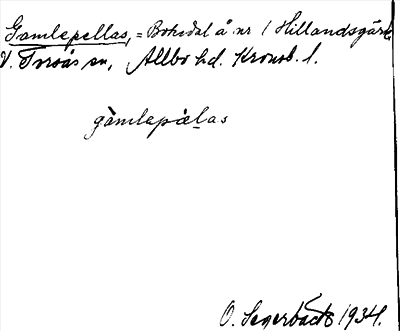 Gamlepellas, = Bokedal å nr 1 Hillandsgärde
V. Torsås sn, Allbo hd. Kronob. l.
gàmlepæ̀las
O. Segerbäck 1934.